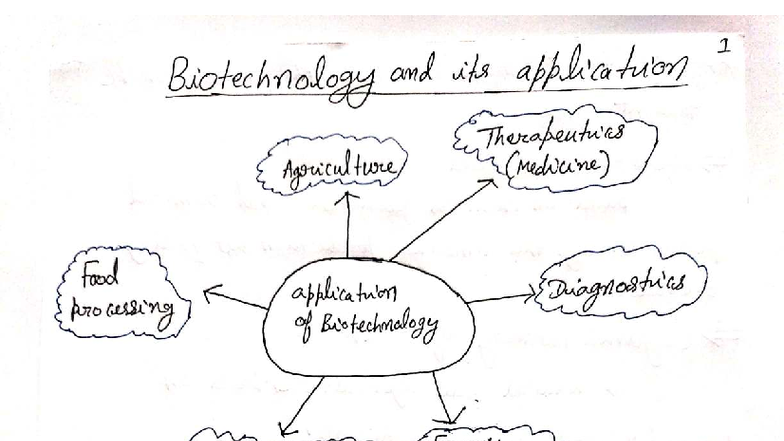 1
Biotechnology and its application
Agriculture
Therapeutics
(Medicine)
Food
processing
application
of Biotechnology
Diagnostics